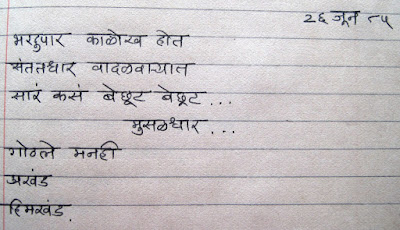 २६ जून ८५
भरदुपार काळोख होत
संततधार वादळवाऱ्यात
सारं कसं बेछूट बेछूट...
मुसळधार...
गोठले मनही
अखंड
हिमखंड.